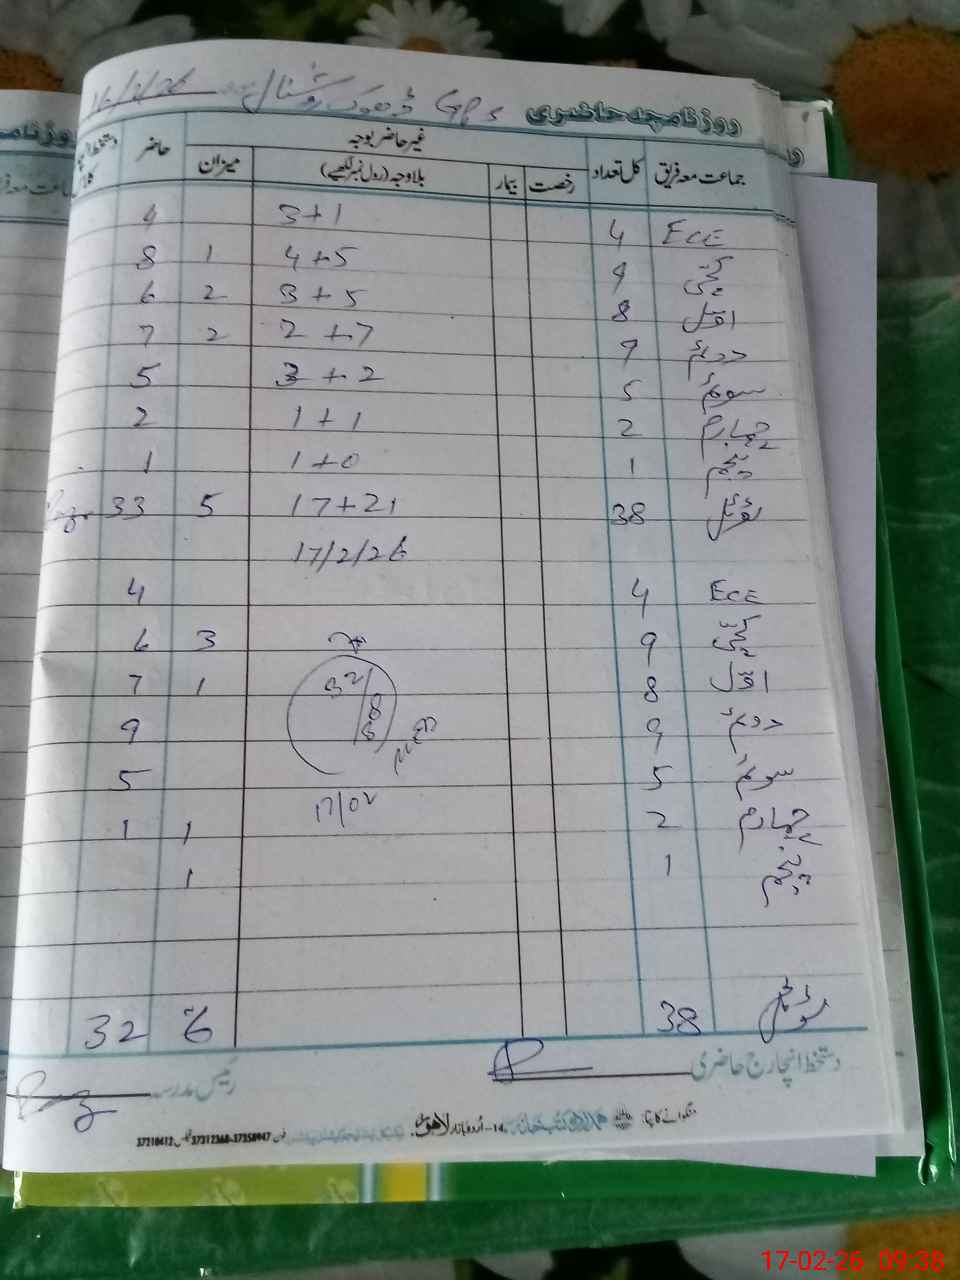 روزنامچہ حاضری GPS ڈھوک
جماعت معہ فریق کل تعداد غیر حاضر بوجہ حاضر
رخصت بیمار بلاوجہ (رول نمبر لکھیے) میزان
ECE 4 3+1 4
کچی 9 4+5 1 8
اوّل 8 3+5 2 6
دوئم 9 2+7 2 7
سوئم 5 3+2 5
چہارم 2 1+1 2
پنجم 1 1+0 1
ٹوٹل 38 17+21 5 33
17/2/26
ECE 4 4
کچی 9 3 6
اوّل 8 1 7
دوئم 9 9
سوئم 5 5
چہارم 2 1 1
پنجم 1 1
32
17/02
ٹوٹل 38 6 32
دستخط انچارج حاضری
رئیس مدرسہ
14-اُردو بازار لاہور
37210412 37312368-37358947
17-02-26 09:38